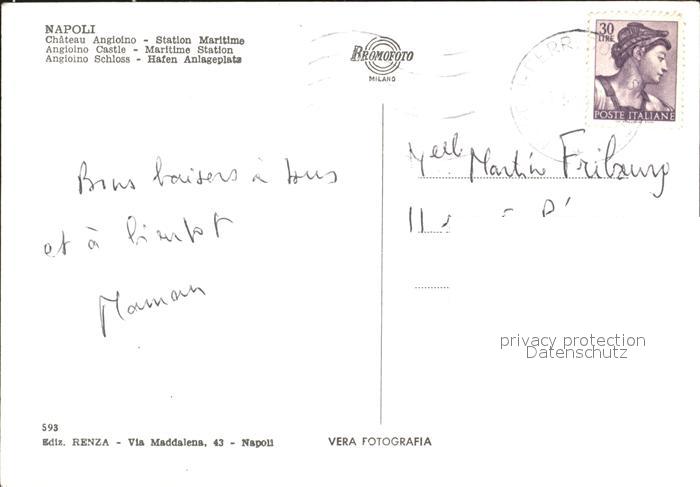 NAPOLI
Château Angioino - Station Maritime
Angioino Castle - Maritime Station
Angioino Schloss - Hafen Anlageplats
BROMOFOTO
MILANO
30
LIRE
POSTE ITALIANE
Bons baisers à tous
et à bientot
Maman
Melle Martin Fribourg
11
D'
privacy protection
Datenschutz
593
Ediz. RENZA - Via Maddalena, 43 - Napoli
VERA FOTOGRAFIA